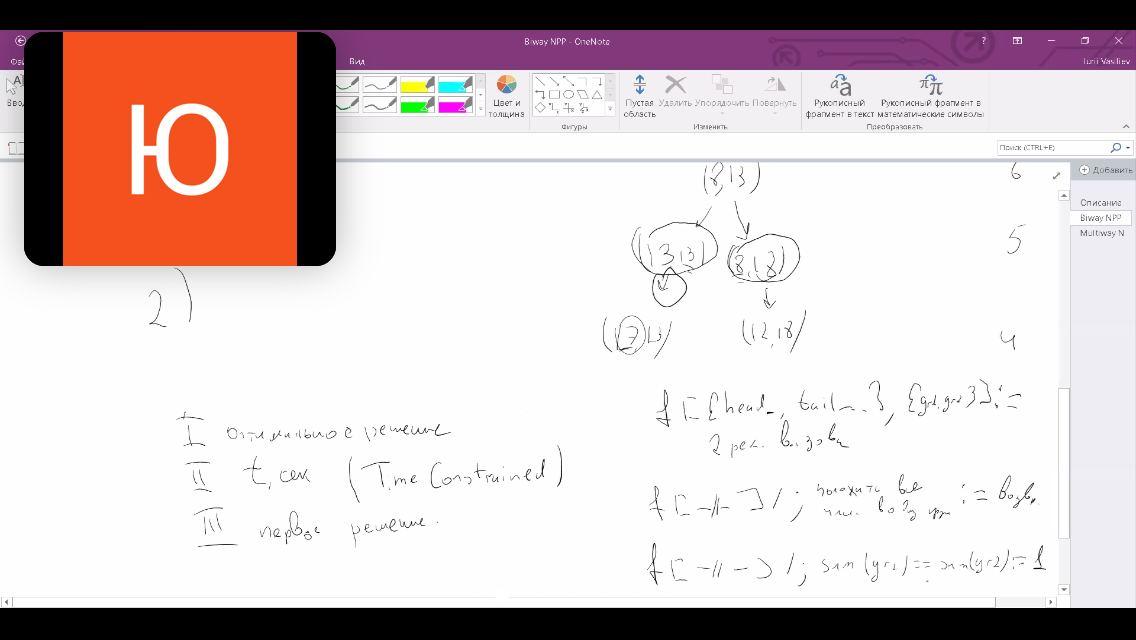 Biway NPP - OneNote
?
Iurii Vasiliev
Вид
Ю
Цвет и
толщина
Фигуры
Пустая
область
Удалить
Упорядочить
Повернуть
Изменить
Рукописный
фрагмент в текст
Рукописный фрагмент в
математические символы
Преобразовать
Поиск (CTRL+E)
Добавить
Описание
Biway NPP
Multiway N
(8,13)
6
(13,13)
(8,18)
5
2)
(12,18)
4
f[{head_, tail__}, {gr1, gr2}] :=
2 рек. вызова
I оптимальное решение
II t, сек (TimeConstrained)
III первое решение.
f[-//-]/; положить все := возвр.
f[-//-]/; sum(gr1) == sum(gr2) := 1